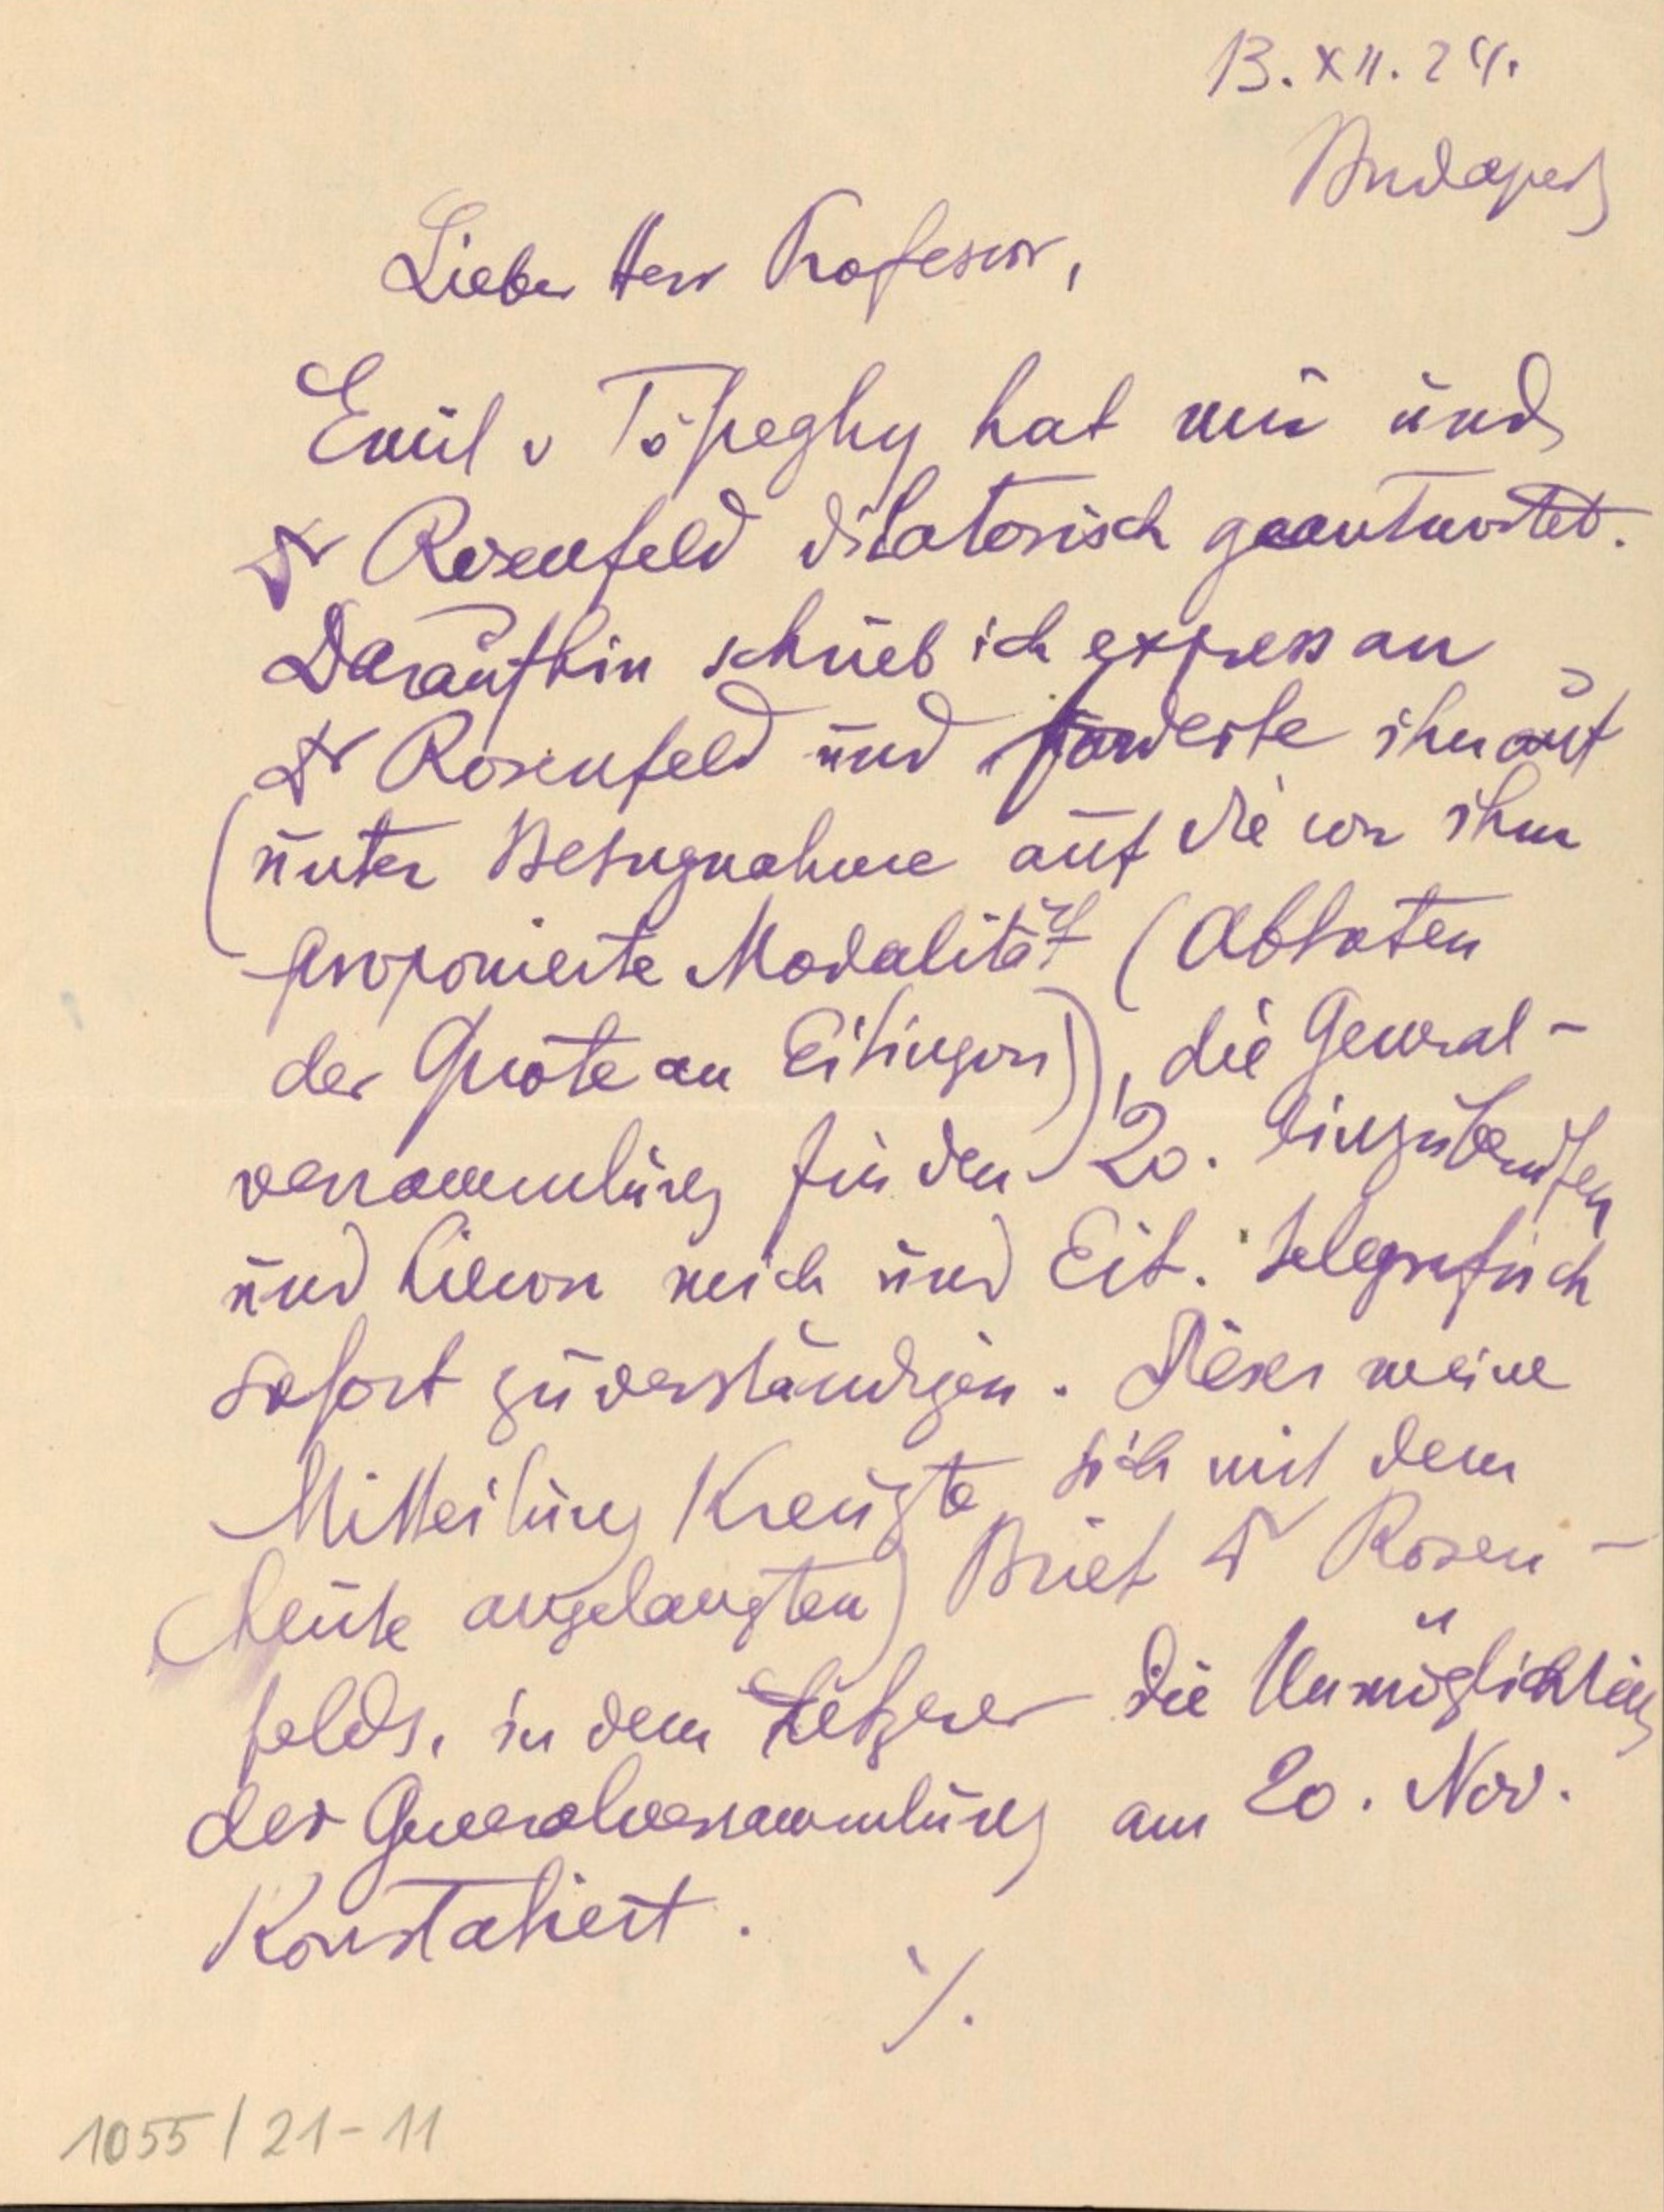 13. XII. 24.
Budapest
Lieber Herr Professor,
Emil v Tószeghy hat mir und
Dr Rosenfeld dilatorisch geantwortet.
Daraufhin schrieb ich express an
Dr Rosenfeld und forderte ihn auf
(unter Bezugnahme auf die von ihm
proponierte Modalität (Abtreten
der Quote an Eitingon)), die General-
versammlung für den 20. einzuberufen
und hievon mich und Eit. telegrafisch
sofort zu verständigen. Diese meine
Mitteilung kreuzte sich mit dem
(heute angelangten) Brief Dr Rosen-
felds, in dem Letzerer die Unmöglichkeit
der Generalversammlung am 20. Nov.
konstatiert.
./.
1055/21-11